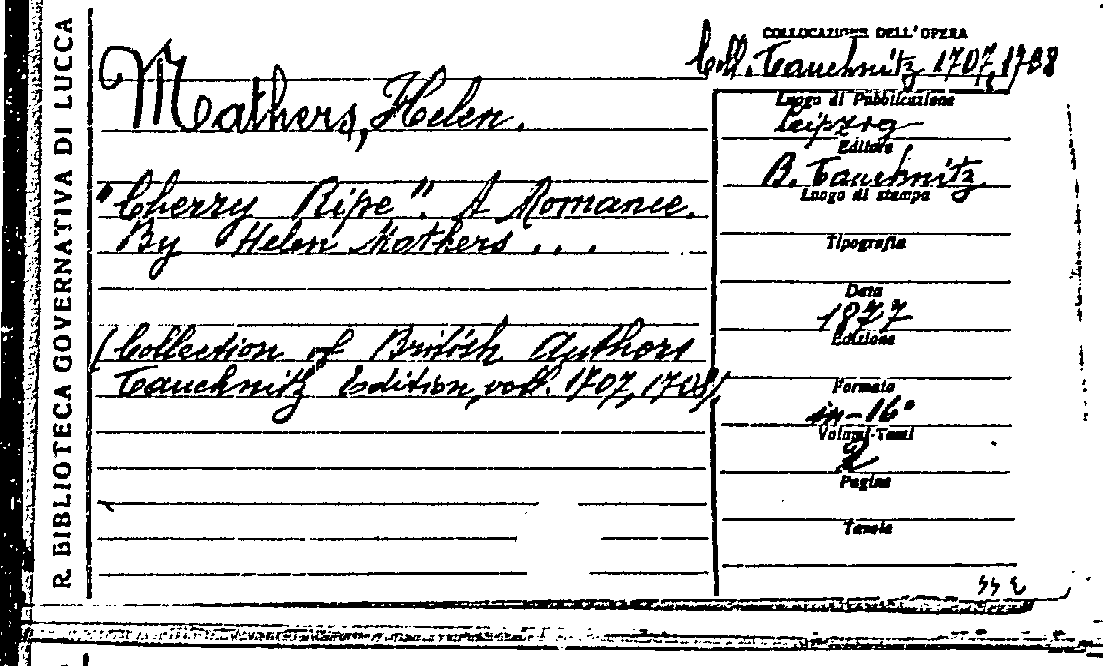 R. BIBLIOTECA GOVERNATIVA DI LUCCA
Mathers, Helen.
"Cherry Ripe". A Romance.
By Helen Mathers . . .
(Collection of British Authors
Tauchnitz Edition, voll. 1707, 1708).
COLLOCAZIONE DELL'OPERA
Coll. Tauchnitz 1707, 1708
Luogo di Pubblicazione
Leipzig
Editore
B. Tauchnitz
Luogo di stampa
Tipografia
Data
1877
Edizione
Formato
in-16°
Volumi-Tomi
2
Pagine
Tavole